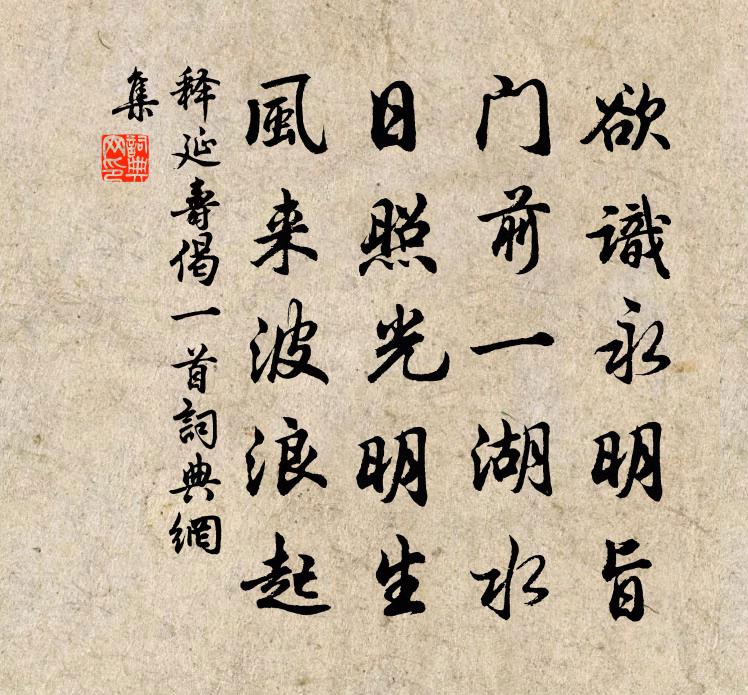 欲識永明旨
门前一湖水
日照光明生
風来波浪起
释延壽偈一首詞典網
集
詞典
网印